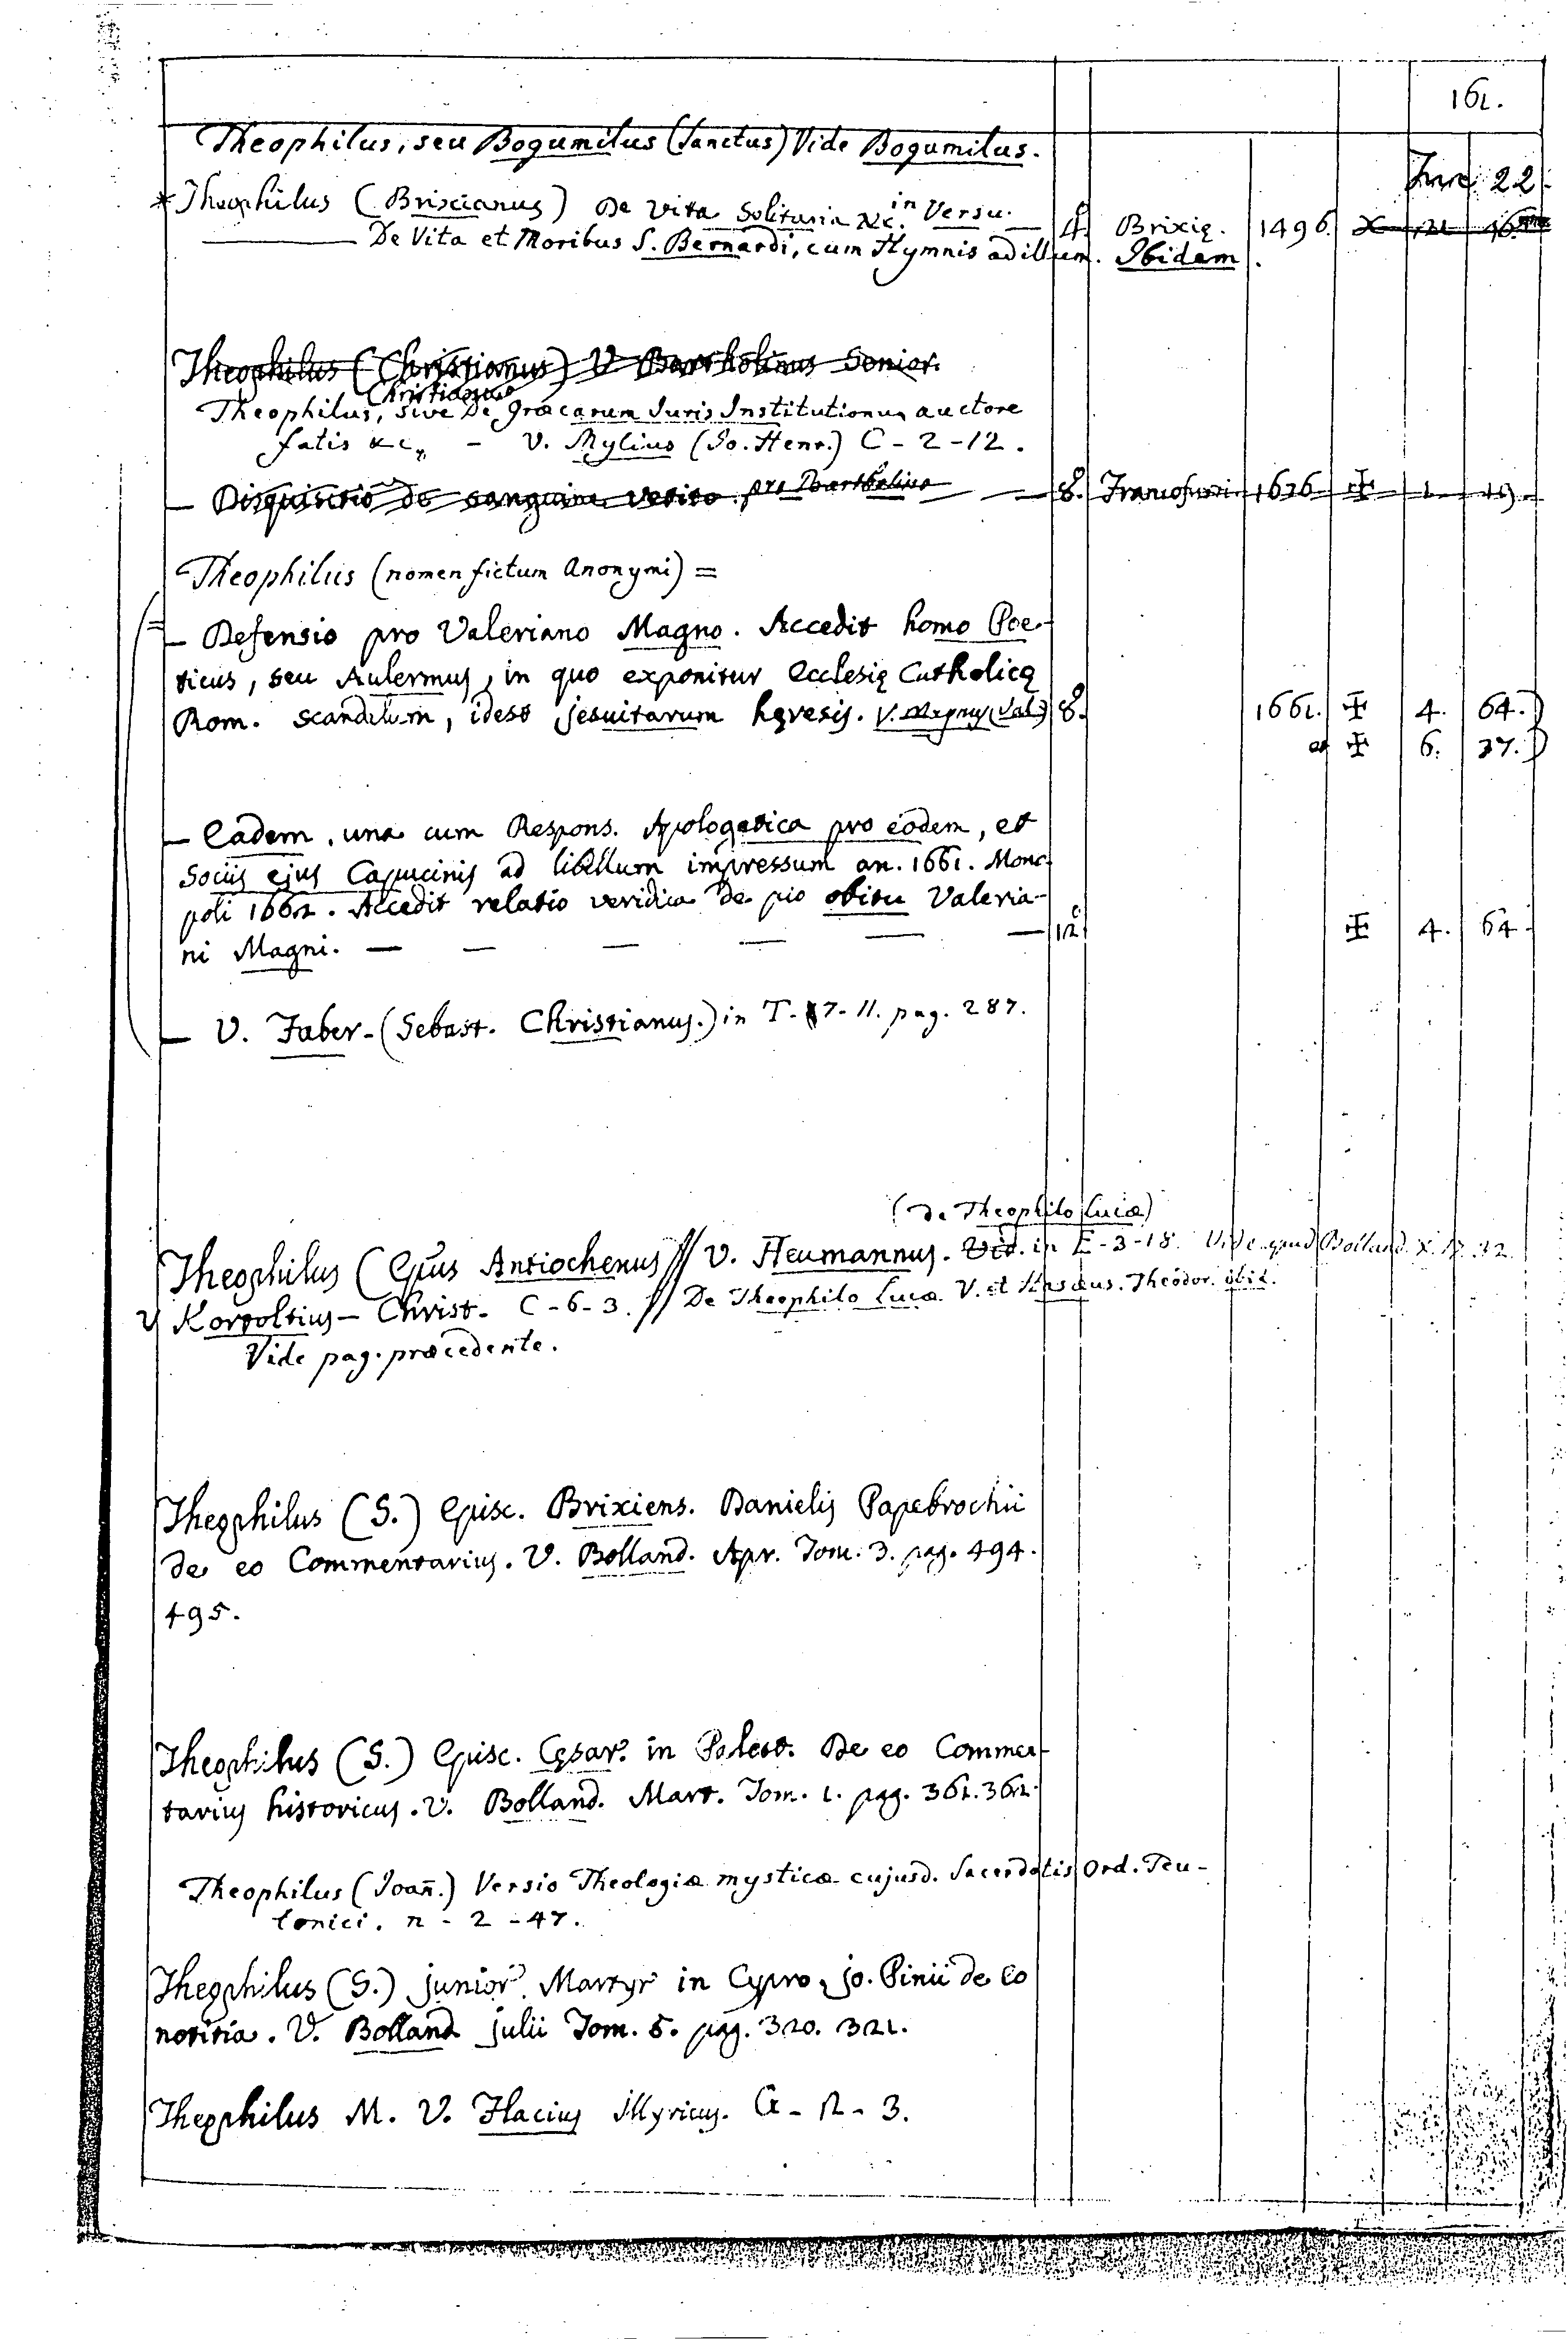 161.
Theophilus, seu Bogumilus (Sanctus) Vide Bogumilus.
22.
* Theophilus (Brixianus) De Vita Solitaria &c. in Versu. — 4.° Brixię. 1496. X 12 16
— De Vita et Moribus S. Bernardi, cum Hymnis ad illum. Ibidem.
Theophilus (Christianus) V Bartholinus Senior.
Christianus
Theophilus, sive De græcarum Juris Institutionum auctore
fatis &c. - V. Mylius (Jo. Henr.) C - 2 - 12.
— Disquisitio de sanguine vetito. pro Bartholino — 8.° Francofurti 1676 ✠ 1. 19.
Theophilus (nomen fictum Anonymi) =
= — Defensio pro Valeriano Magno. Accedit homo Poe-
ticus, seu Aulermus, in quo exponitur Ecclesię Catholicę
Rom. scandalum, idest jesuitarum hęresis. V. Magnus (Val.) 8.° 1661. ✠ 4. 64.)
et ✠ 6. 37.)
— Eadem, una cum Respons. Apologetica pro eodem, et
Sociis ejus Capucinis ad libellum impressum an. 1661. Mono-
poli 1662. Accedit relatio veridica de pio obitu Valeria-
ni Magni. — — — — — — 12.° ✠ 4. 64.
— V. Faber - (Sebast. Christianus.) in T - 7 - 11. pag. 287.
(de Theophilo Lucæ)
Theophilus (Epus Antiochenus // V. Heumannus. Vid. in E - 3 - 18. Vide apud Bolland. X. 12. 32.
V Kortoltius — Christ - C - 6 - 3. // De Theophilo Lucæ V. et Hasæus. Theodor. ibid.
Vide pag. præcedente.
Theophilus (S.) Episc. Brixiens. Danielis Papebrochii
de eo Commentarius. V. Bolland. Apr. Tom. 3. pag. 494.
495.
Theophilus (S.) Episc. Cęsar. in Palest. De eo Commen-
tarius historicus. V. Bolland. Mart. Tom. 1. pag. 361. 362.
Theophilus (Joan̄.) Versio Theologiæ mysticæ cujusd. Sacerdotis Ord. Teu-
tonici. n - 2 - 47.
Theophilus (S.) junior Martyr in Cypro, jo. Pinii de eo
notitia. V. Bolland julii Tom. 5. pag. 320. 321.
Theophilus M. V. Flacius Illyricus. G - n - 3.